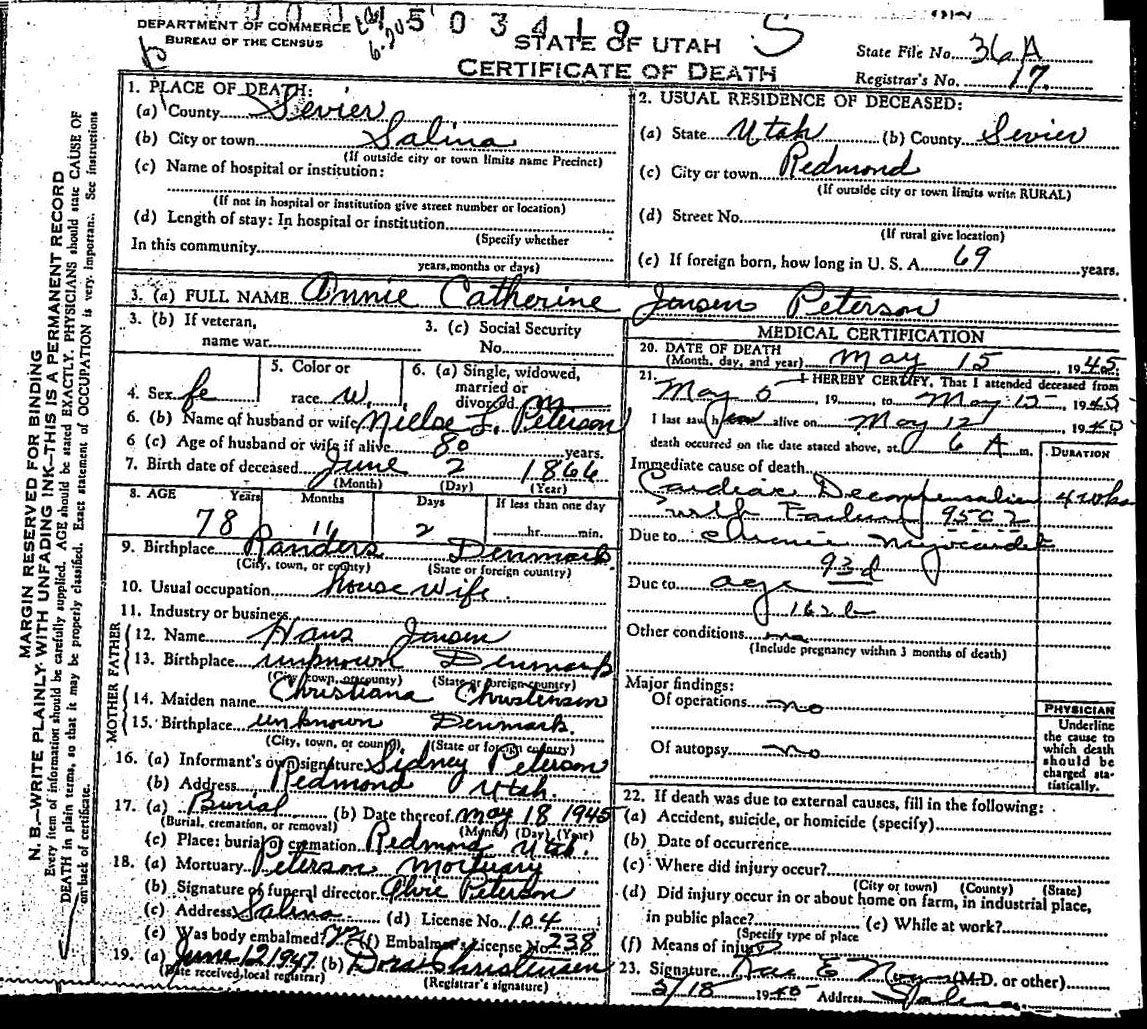 DEPARTMENT OF COMMERCE
BUREAU OF THE CENSUS
503419
STATE OF UTAH
CERTIFICATE OF DEATH
State File No. 36 A
Registrar's No. 17.
MARGIN RESERVED FOR BINDING
N. B.—WRITE PLAINLY WITH UNFADING INK—THIS IS A PERMANENT RECORD
Every item of information should be carefully supplied. AGE should be stated EXACTLY. PHYSICIANS should state CAUSE OF
DEATH in plain terms, so that it may be properly classified. Exact statement of OCCUPATION is very important. See instructions
on back of certificate.
1. PLACE OF DEATH:
(a) County Sevier
(b) City or town Salina
(If outside city or town limits name Precinct)
(c) Name of hospital or institution:
(If not in hospital or institution give street number or location)
(d) Length of stay: In hospital or institution
(Specify whether
In this community
years, months or days)
2. USUAL RESIDENCE OF DECEASED:
(a) State Utah (b) County Sevier
(c) City or town Redmond
(If outside city or town limits write RURAL)
(d) Street No.
(If rural give location)
(e) If foreign born, how long in U. S. A. 69 years.
3. (a) FULL NAME Annie Catherine Jensen Peterson
3. (b) If veteran,
name war
3. (c) Social Security
No.
4. Sex fe
5. Color or
race W.
6. (a) Single, widowed,
married or
divorced m
6. (b) Name of husband or wife L. Peterson
6 (c) Age of husband or wife if alive 80 years.
7. Birth date of deceased June 2 1866
(Month) (Day) (Year)
8. AGE Years Months Days If less than one day
78 11 2 hr. min.
9. Birthplace Randers Denmark
(City, town, or county) (State or foreign country)
10. Usual occupation house wife.
11. Industry or business
FATHER
12. Name Hans Jensen
13. Birthplace unknown Denmark
(City, town, or county) (State or foreign country)
MOTHER
14. Maiden name Christiana Christensen
15. Birthplace unknown Denmark.
(City, town, or county) (State or foreign country)
16. (a) Informant's own signature Sidney Peterson
(b) Address Redmond Utah.
17. (a) Burial (b) Date thereof May 18 1945
(Burial, cremation, or removal) (Month) (Day) (Year)
(c) Place: burial or cremation Redmond Utah.
18. (a) Mortuary Peterson Mortuary
(b) Signature of funeral director Alvie Peterson
(c) Address Salina (d) License No. 104
(e) Was body embalmed? (f) Embalmer's License No. 238
19. (a) June 12 1947 (b) Dora Christensen
(Date received, local registrar) (Registrar's signature)
MEDICAL CERTIFICATION
20. DATE OF DEATH
(Month, day, and year) May 15 1945
21. I HEREBY CERTIFY, That I attended deceased from
May 5 , 19 , to May 15 1945
I last saw h alive on May 12 1945
death occurred on the date stated above, at 6 A m.
DURATION
Immediate cause of death
Cardiac Decompensation 4 wks
with Failure 95C2
Due to Chronic
93d
Due to age
162b
Other conditions no
(Include pregnancy within 3 months of death)
Major findings:
Of operations no
Of autopsy no
PHYSICIAN
Underline
the cause to
which death
should be
charged sta-
tistically.
22. If death was due to external causes, fill in the following:
(a) Accident, suicide, or homicide (specify)
(b) Date of occurrence
(c) Where did injury occur?
(City or town) (County) (State)
(d) Did injury occur in or about home on farm, in industrial place,
in public place? (e) While at work?
(Specify type of place
(f) Means of injury
23. Signature Rae E Noyes (M.D. or other)
5/18 1945 Address Salina